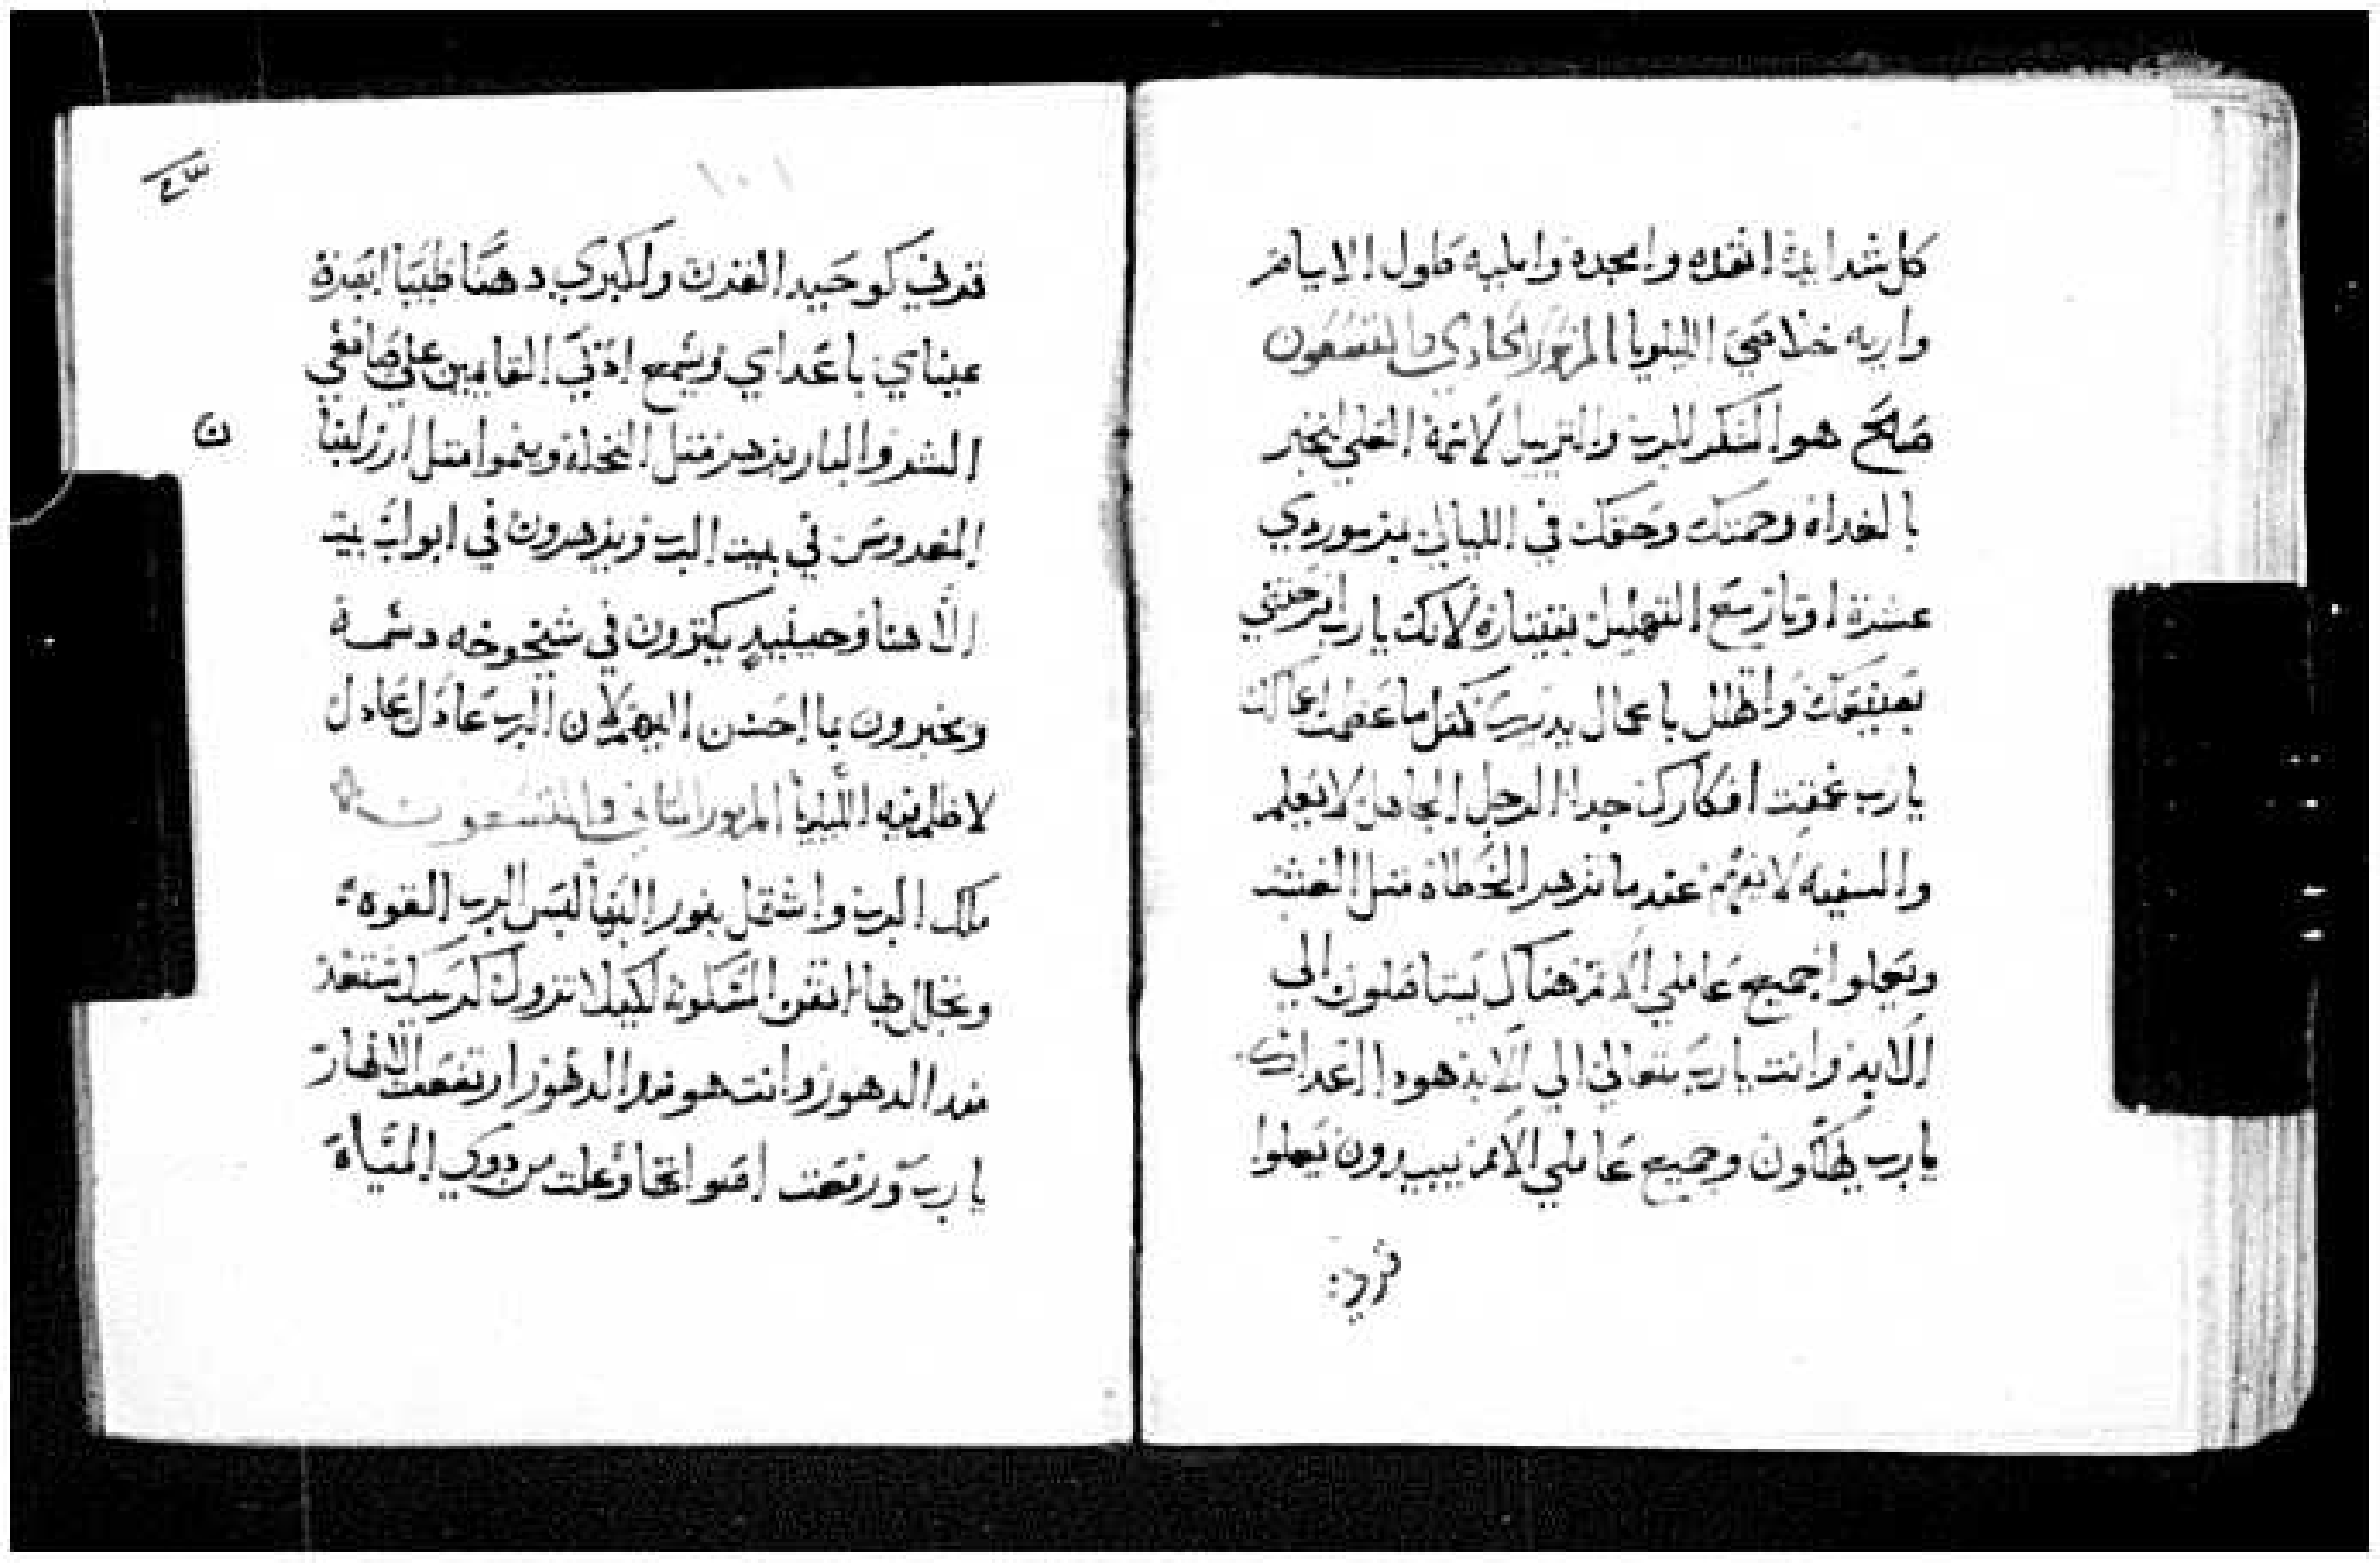 كل شدايده انقده وامجده وامليه طول الايام
واريه خلاصي الليلويا المزمور الحادي والتسعون
صالح هو الشكر للرب والترتيل لاسمه العلي لنخبر
بالغداه رحمتك وحقك في الليالي بمزموردي
عشرة اوتار مع التهليل بقيتارة لانك يا رب فرحتني
بصنيعك واتهلل باعمال يديك مثل ما عظمت اعمالك
يا رب عمقت افكارك جدا الرجل الجاهل لا يعلم
والسفيه لا يفهم عندما تزهر الخطاة مثل العشب
ويعلوا جميع عاملي الاثم هنالك يستاصلون الي
الابد وانت يا رب متعالي الي الابد هوذا اعداك
يا رب يهلكون وجميع عاملي الاثم يبيدون يعلوا
قرني
١٠١
قرني كوحيد القرن والكبري دهنا طيبا ابصرة
عيناي باعداي وسمع ادني القايمين علي صانعي
ن
الشر والبار يزهر مثل النخلة وينموا مثل ارز لبنا
المغروس في بيت الرب ويزهرون في ابواب بيت
الاهنا وحينيد يكثرون في شيخوخه دسمة
ويخبرون بااحسن البهم لان الرب عادل عادل
لا ظلم فيه الليلويا المزمور الثاني والتسعون
ملك الرب واشتمل بنور البها لبس الرب القوه
وتجلل بها اتقن المسكونة لكيلا تزول كرسيك مستعد
مند الدهور وانت هو مند الدهور ارتفعت الانهار
يا رب ورفعت اصواتها وعلت من دوي المياة